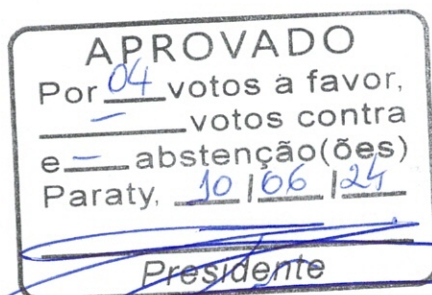 APROVADO
Por 04 votos a favor,
— votos contra
e — abstenção(ões)
Paraty, 10/06/24
Presidente